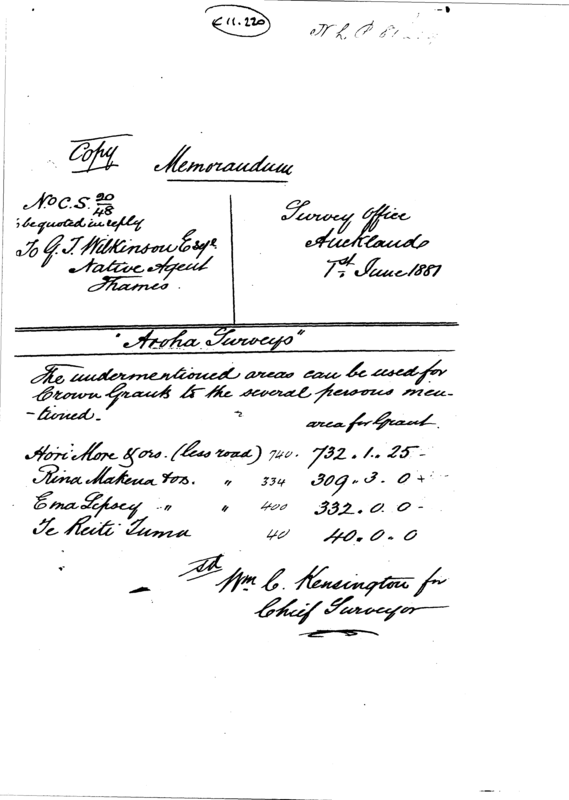 E 11.220
Copy
Memorandum
No C.S. 20/48
be quoted in reply
To G. T. Wilkinson Esqr.
Native Agent
Thames.
Survey Office
Auckland
1st June 1881
"Aroha Surveys"
The undermentioned areas can be used for
Crown Grants to the several persons men-
-tioned.
area for Grant.
Hori More & ors. (less road) 740. 732.1.25 -
Rina Makena & ors. " 334 309.3.0 +
Ema Lipsey " " 400 332.0.0 -
Te Reiti Tuma 40 40.0.0
sd Wm C. Kensington for
Chief Surveyor